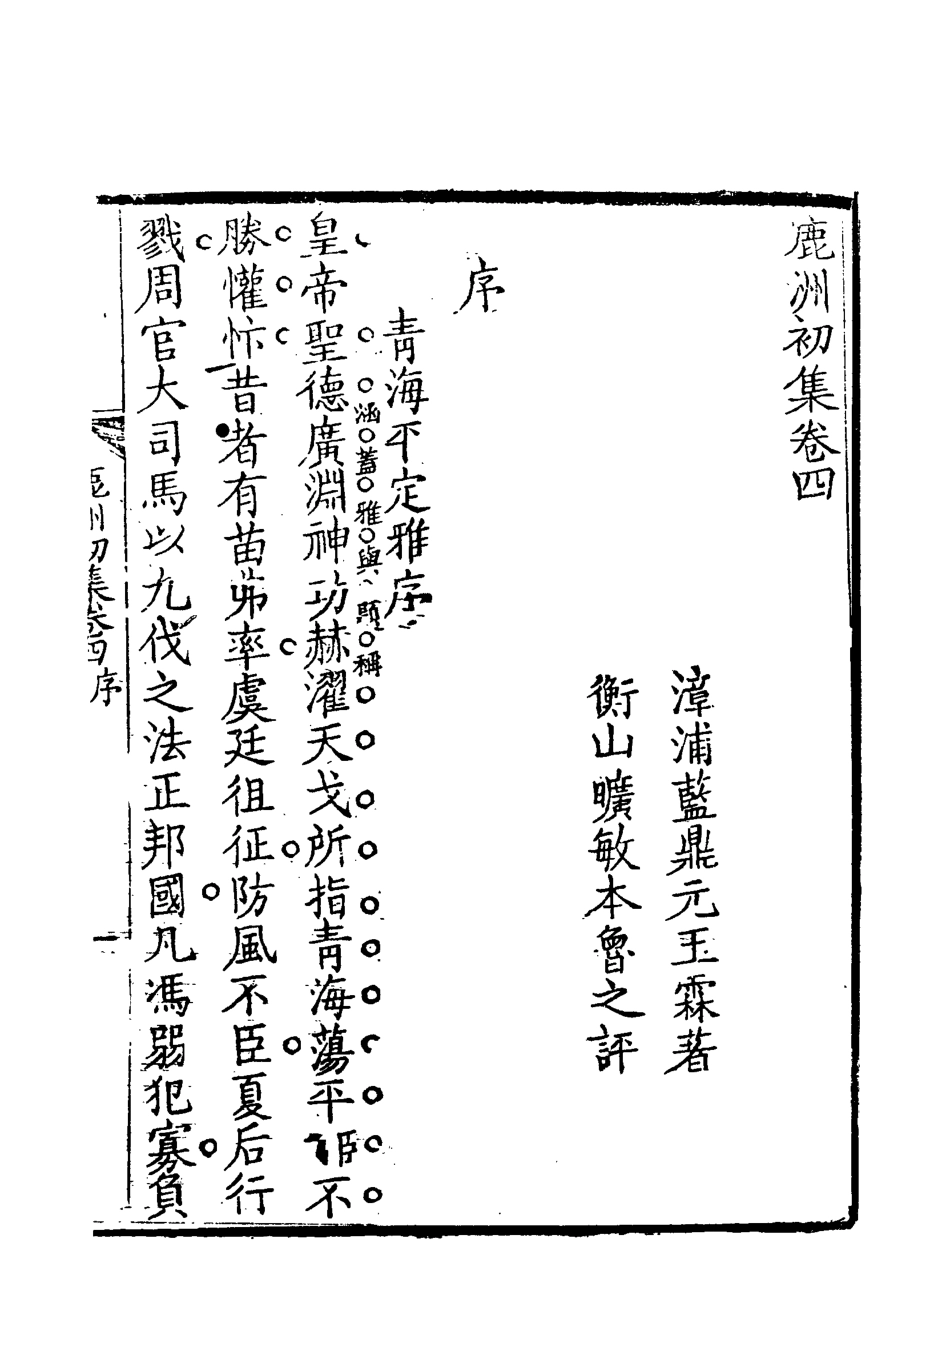 鹿洲初集卷四
漳浦藍鼎元玉霖著
衡山曠敏本魯之評
序
青海平定雅序
涵蓋雅與題稱
皇帝聖德廣淵神功赫濯天戈所指青海蕩平臣不
勝懽忭昔者有苗弗率虞廷徂征防風不臣夏后行
戮周官大司馬以九伐之法正邦國凡馮弱犯寡負
鹿洲初集卷四序
一